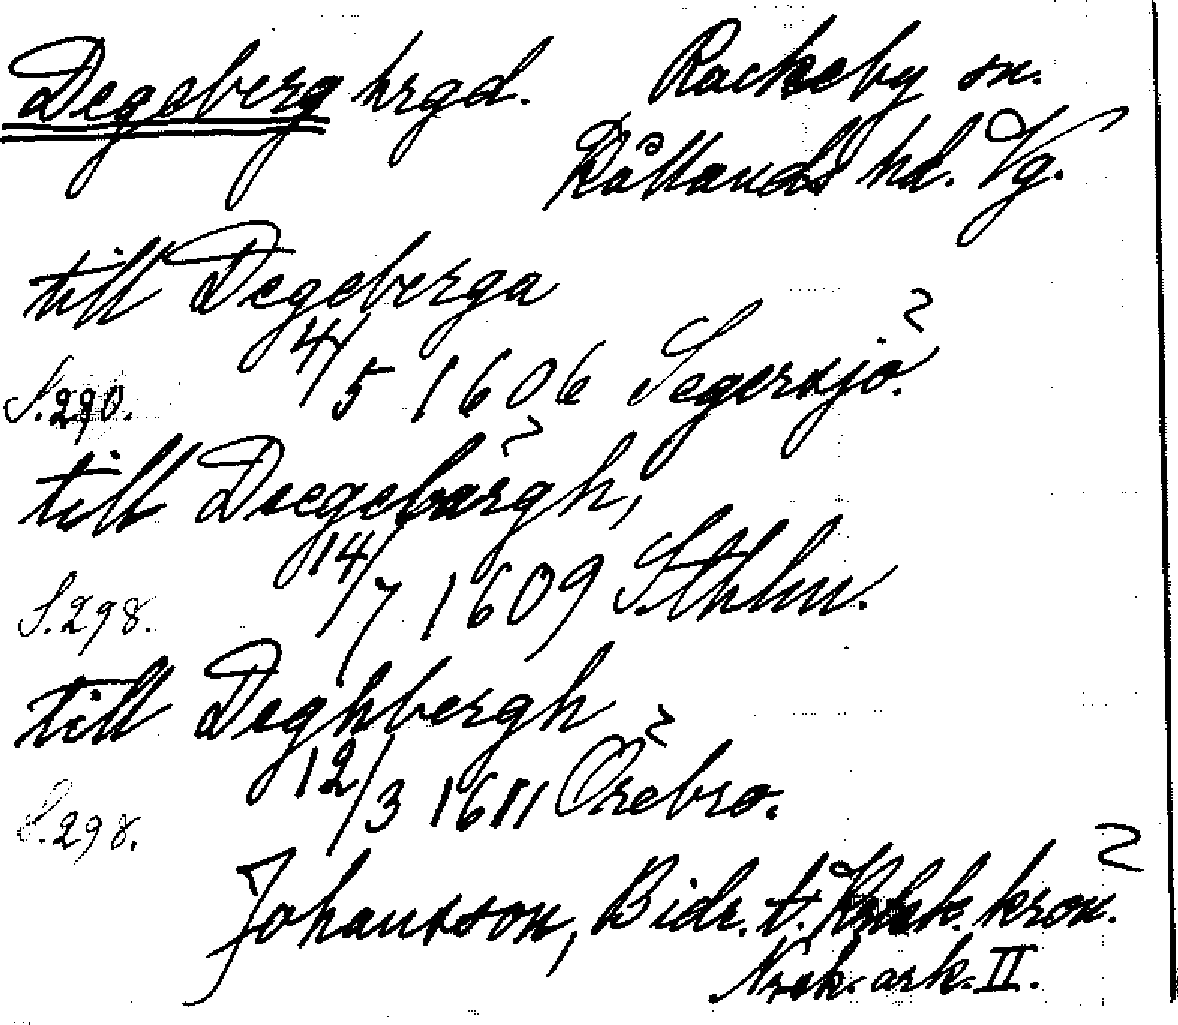 Degeberg hrgd. Rackeby sn.
Kållands hd. Vg.
till Degeberga
S.290. 4/5 1606 Segersjö.
till Deegebärgh,
S.298. 14/7 1609 Sthlm.
till Deghbergh
S.298. 12/3 1611 Örebro.
Johansson, Bidr. t. kyrk. kron.
Nrek. ark. II.